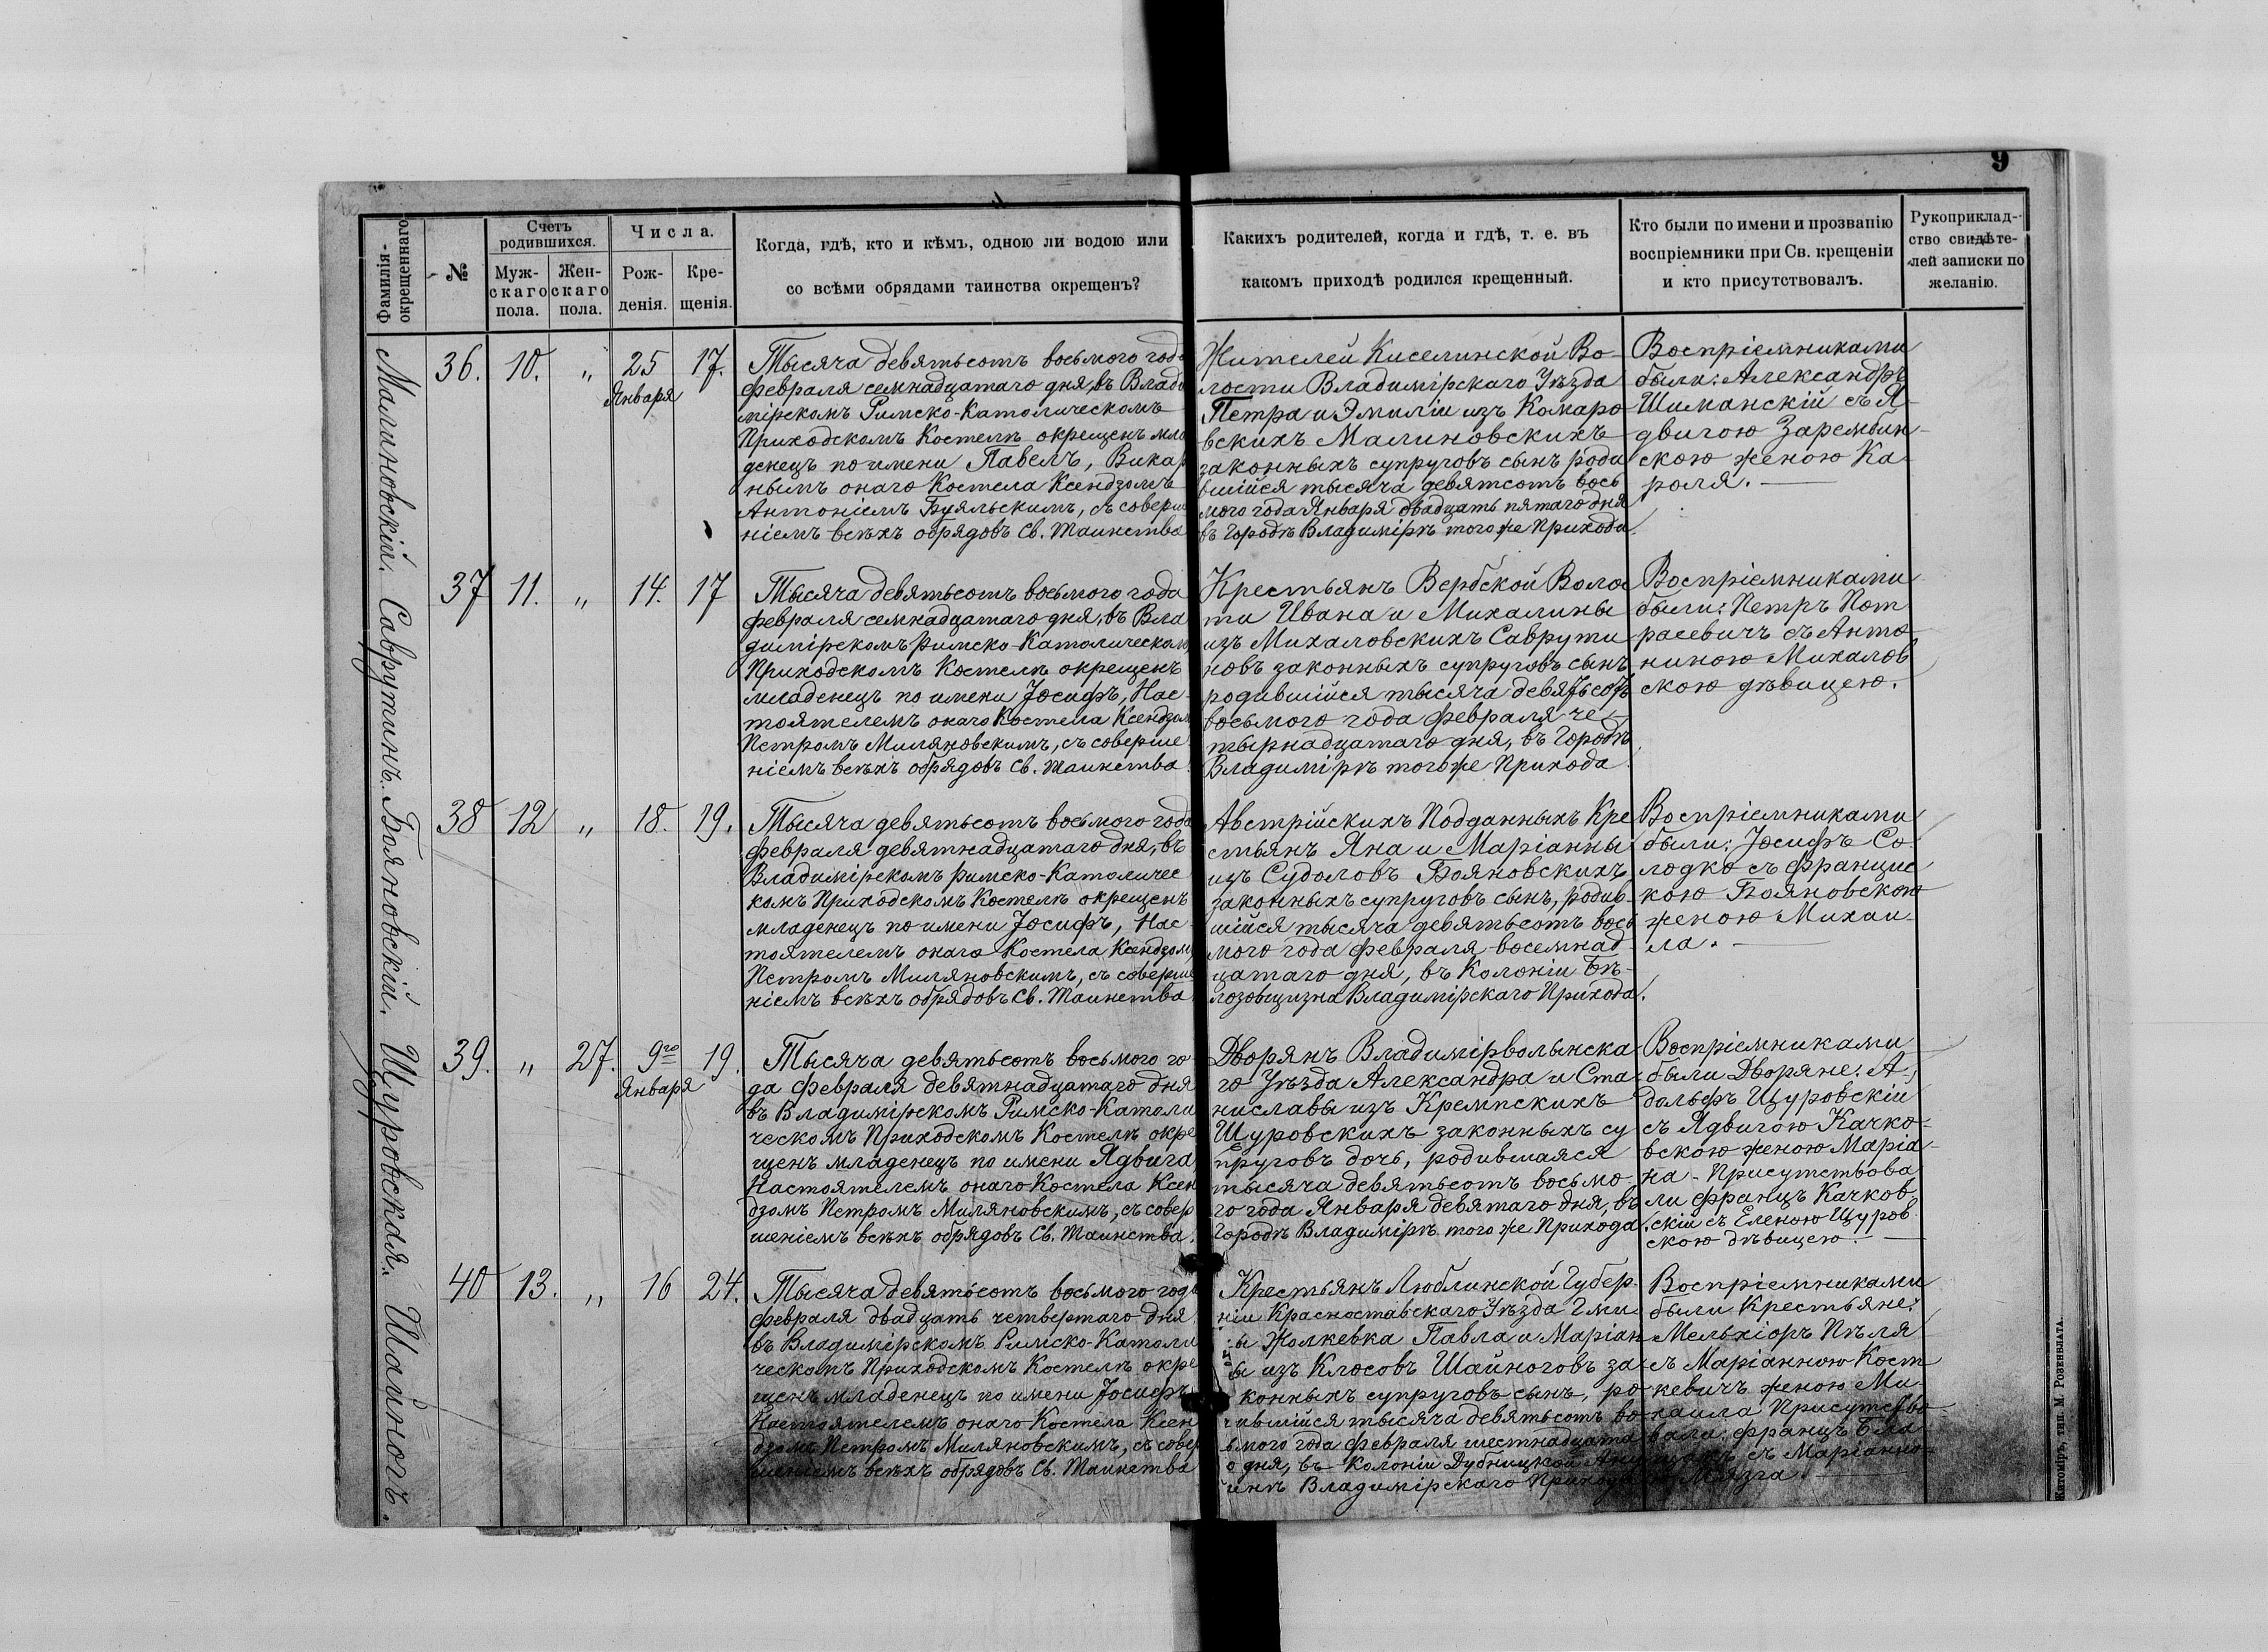 9
Фамилія окрещеннаго
№
Счетъ родившихся.
Мужскаго пола.
Женскаго пола.
Числа.
Рожденія.
Крещенія.
Когда, гдѣ, кто и кѣмъ, одною ли водою или
со всѣми обрядами таинства окрещенъ?
Какихъ родителей, когда и гдѣ, т. е. въ
какомъ приходѣ родился крещенный.
Кто были по имени и прозванію
воспріемники при Св. крещеніи
и кто присутствовалъ.
Рукоприклад-
ство свидѣте-
лей записки по
желанію.
Малиновскій.
36. 10. „ 25 Января 17.
Тысяча девятьсотъ восьмого года
февраля семнадцатаго дня, въ Влади
мірскомъ Римско-Католическомъ
Приходскомъ Костелѣ окрещенъ мла
денецъ по имени Павелъ, Викар
нымъ онаго Костела Ксендзомъ
Антоніемъ Буяльскимъ, съ соверше
ніемъ всѣхъ обрядовъ Св. Таинства
Жителей Киселинской Во-
лости Владимірскаго Уѣзда
Петра и Эмиліи изъ Комаро
вскихъ Малиновскихъ
законныхъ супруговъ сынъ роди
вшійся тысяча девятсотъ вось
мого года Января двадцать пятаго дня
въ Городѣ Владимірѣ того же Прихода.
Воспріемниками
были: Александръ
Шиманскій съ Я-
двигою Зарембин-
скою женою Ка-
роля.
Саврутинъ.
37 11. „ 14. 17
Тысяча девятьсотъ восьмого года
февраля семнадцатаго дня, въ Вла
димірскомъ Римско-Католическомъ
Приходскомъ Костелѣ окрещенъ
младенецъ по имени Іосифъ, Нас-
тоятелемъ онаго Костела Ксендзом
Петромъ Миляновскимъ, съ соверше
ніемъ всѣхъ обрядовъ Св. Таинства.
Крестьянъ Вербской Волос
ти Ивана и Михалины
изъ Михаловскихъ Саврути
новъ законныхъ супруговъ сынъ
родившійся тысяча девятьсотъ
восьмого года февраля че-
тырнадцатаго дня, въ Городѣ
Владимірѣ того же Прихода.
Воспріемниками
были: Петръ Пот
расевичъ съ Анто-
ниною Михалов
скою дѣвицею.
Бояновскій.
38 12 „ 18. 19.
Тысяча девятьсотъ восьмого года
февраля девятнадцатаго дня, въ
Владимірскомъ Римско-Католичес
комъ Приходскомъ Костелѣ окрещенъ
младенецъ по имени Іосифъ, Нас-
тоятелемъ онаго Костела Ксендзомъ
Петромъ Миляновскимъ, съ соверше
ніемъ всѣхъ обрядовъ Св. Таинства.
Австрійскихъ Подданныхъ Кре
стьянъ Яна и Маріанны
изъ Судоловъ Бояновскихъ
законныхъ супруговъ сынъ, родив-
шійся тысяча девятьсотъ вось
мого года февраля восемнад
цатаго дня, въ Колоніи Бѣ-
лозовщизна Владимірскаго Прихода.
Воспріемниками
были: Іосифъ Со-
лодко съ Францис
кою Бояновскою
женою Михаи-
ла.
Щуровская.
39. „ 27. 9го Января 19.
Тысяча девятьсотъ восьмого го-
да февраля девятнадцатаго дня
въ Владимірскомъ Римско-Католи
ческомъ Приходскомъ Костелѣ окре
щенъ младенецъ по имени Ядвига
Настоятелемъ онаго Костела Ксен
дзомъ Петромъ Миляновскимъ, съ совер
шеніемъ всѣхъ обрядовъ Св. Таинства.
Дворянъ Владимірволынска-
го Уѣзда Александра и Ста-
ниславы изъ Кремпскихъ
Щуровскихъ законныхъ су
пруговъ дочь, родившаяся
тысяча девятьсотъ восьмо-
го года Января девятаго дня, въ
Городѣ Владимірѣ того же Прихода.
Воспріемниками
были Дворяне: А-
дольфъ Щуровскій
съ Ядвигою Качко-
вскою женою Маріа-
на - Присутствова
ли Францъ Качков
скій съ Еленою Щуров
скою дѣвицею.
Шайногъ.
40 13. „ 16 24.
Тысяча девятьсотъ восьмого года
февраля двадцать четвертаго дня
въ Владимірскомъ Римско-Католи
ческомъ Приходскомъ Костелѣ окре
щенъ младенецъ по имени Іосифъ
Настоятелемъ онаго Костела Ксен
дзомъ Петромъ Миляновскимъ, съ совер
шеніемъ всѣхъ обрядовъ Св. Таинства
Крестьянъ Люблинской Губер-
ніи Красноставскаго Уѣзда Гми
ны Жолкевка Павла и Маріан
ны изъ Клосовъ Шайноговъ за-
конныхъ супруговъ сынъ, ро-
дившійся тысяча девятьсотъ во
ьмого года февраля шестнадцата
о дня, въ Колоніи Дубницкой
Владимірскаго Прихода
Воспріемниками
были Крестьяне:
Мельхіоръ Пѣля
съ Маріанною Кост
кевичъ женою Ми-
хаила Присутство
вали: Францъ
съ Маріанно-
Мязга.
Житоміръ, тип. М. Розенблата.